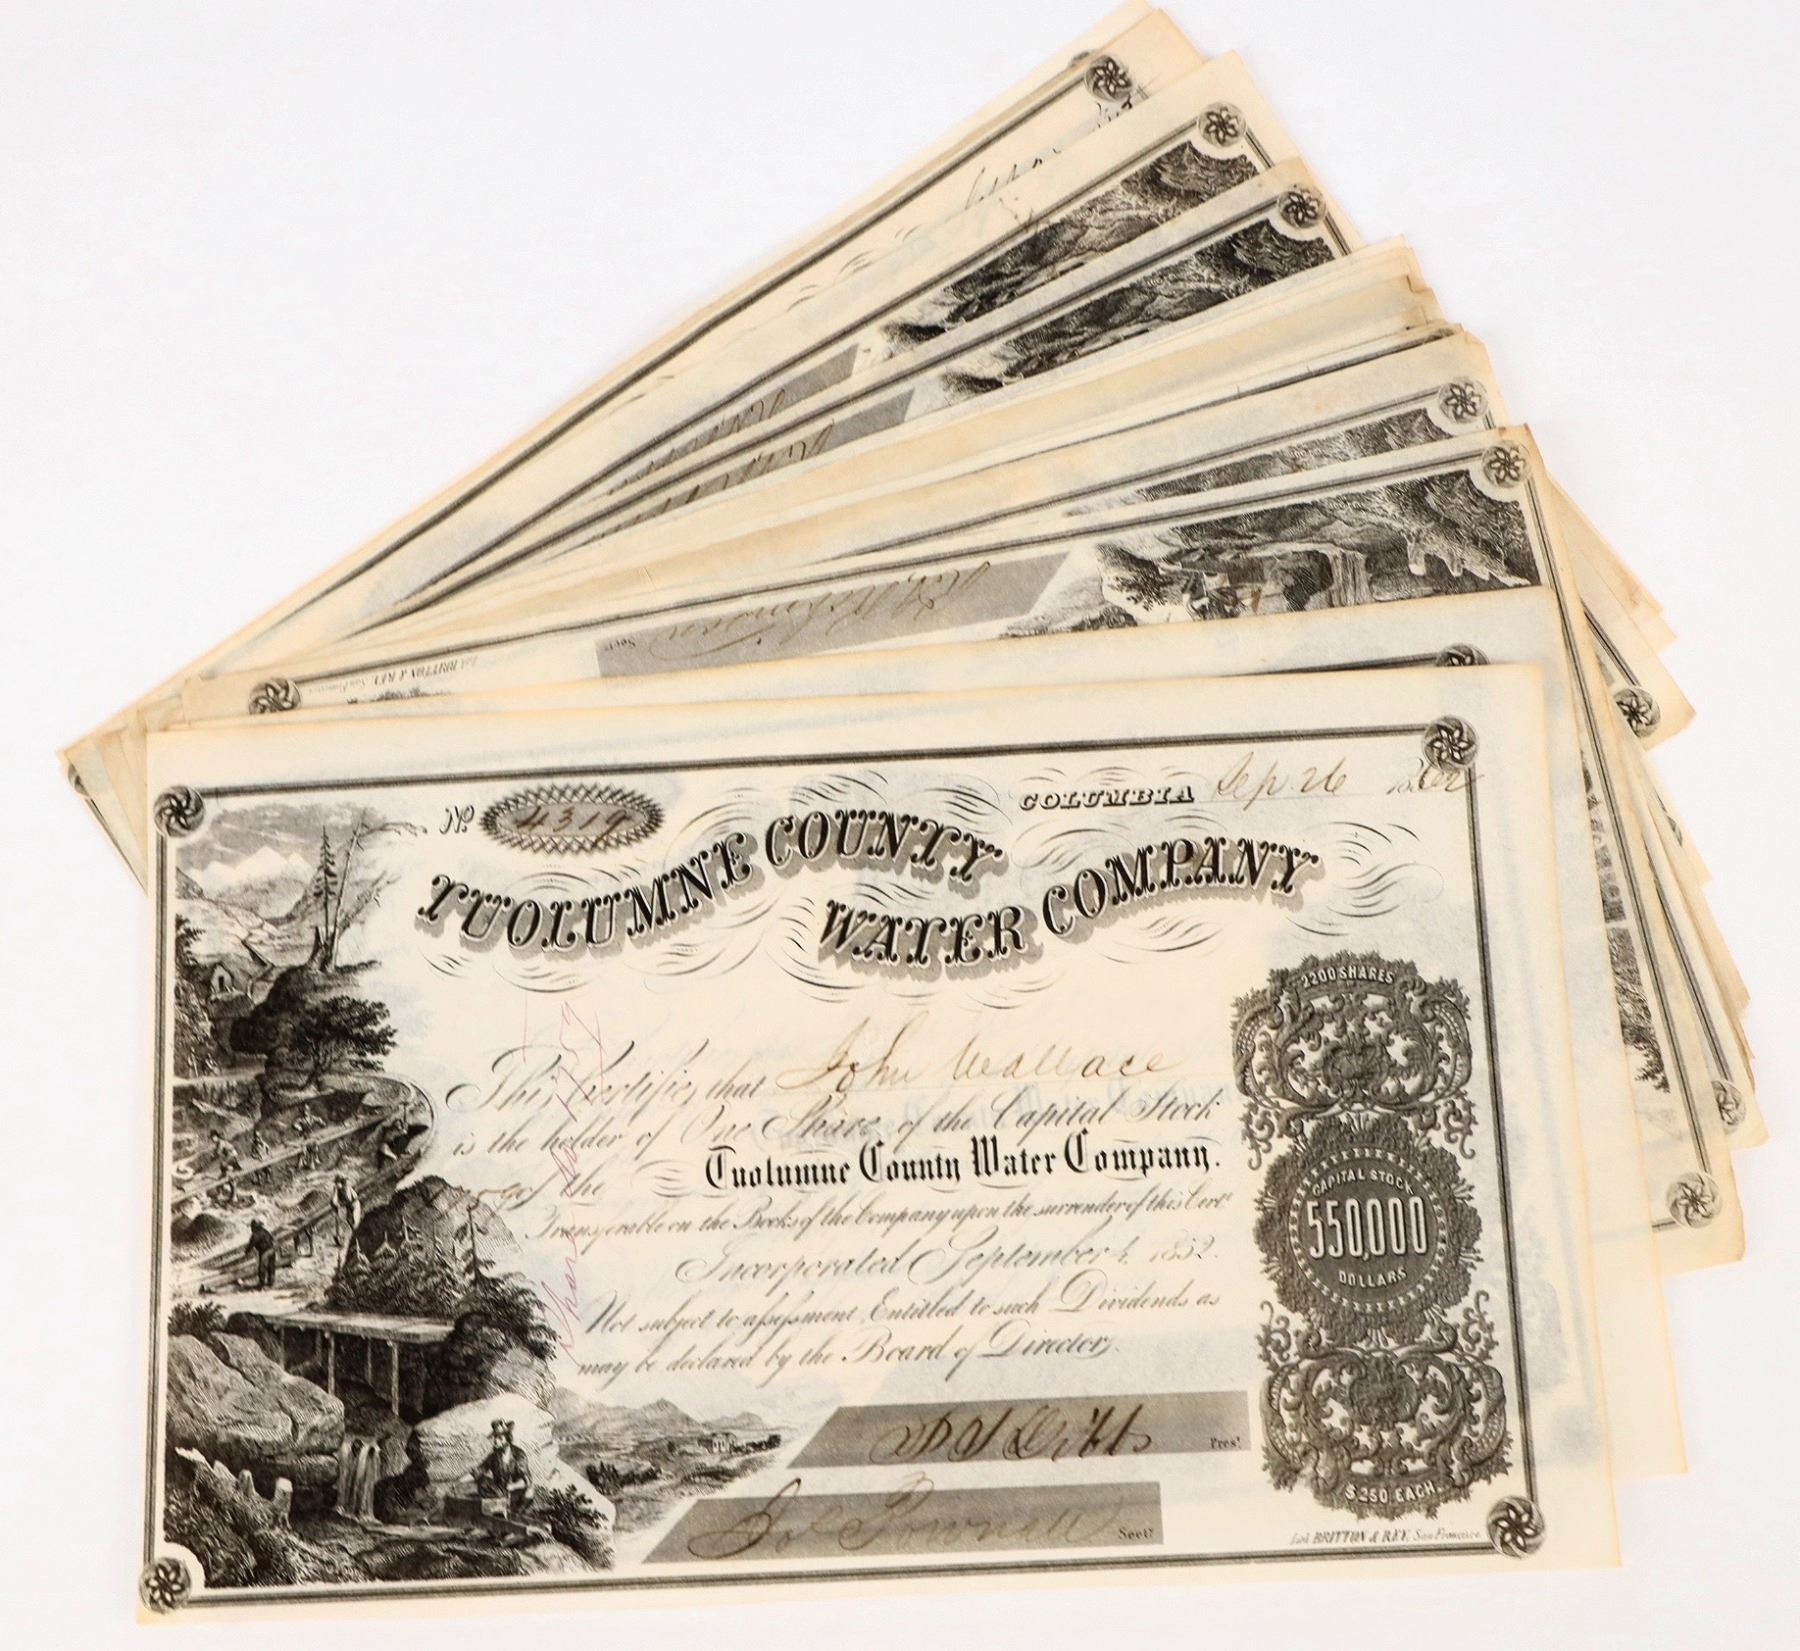 No 4319
COLUMBIA Sep. 26 1862
TUOLUMNE COUNTY
WATER COMPANY
This Certifies that John Wallace
is the holder of One Share of the Capital Stock
of the Tuolumne County Water Company.
Transferable on the Books of the Company upon the surrender of this Cert.
Incorporated September 4, 1852.
Not subject to assessment, Entitled to such Dividends as
may be declared by the Board of Directors.
Pres!
Jos Pownall Sect!
2200 SHARES
CAPITAL STOCK
550,000
DOLLARS
$250 EACH.
Lith. BRITTON & REY, San Francisco.
Share
Sect!
Lith. BRITTON & REY, San Francisco